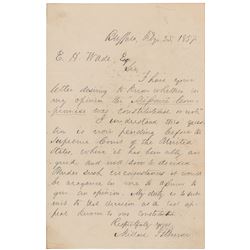 Buffalo, Feby. 25. 1857
E. H. Wade, Esq
Sir
I have your
letter desiring to know whether in
my opinion the Missouri Com-
promise was constitutional or not.
I understand this ques
tion is now pending before the
Supreme Court of the United
States, where it has been ably ar
gued and must soon be decided
Under such circumstances it would
be arrogance in me to
give an opinion. My duty is to sub
mit to that decision as the last
appeal known to our Constitution
Respectfully yours
Millard Fillmore